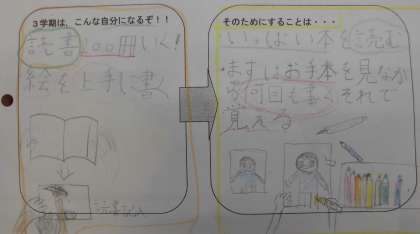 3学期は、こんな自分になるぞ!!
読書100冊いく!
絵を上手に書く
そのためにすることは・・・
いっぱい本を読む
まずはお手本を見なが
ら何回も書くそれで
見える